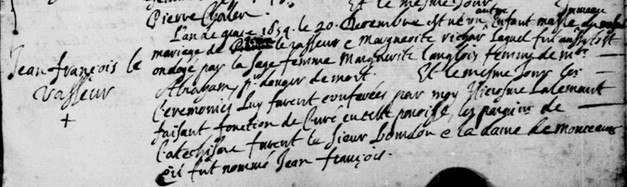 Et le mesme Jour
Pierre
L'an de grace 1659. le 20. Decembre est né un autre Enfant masle
mariage de le Vasseur e Marguerite Richar lequel fut aussy tost
ondoyé par la sage femme Marguerite Langlois femme de mre
Jean François le
Vasseur
+
Abraham, danger de mort. Et le mesme Jour les
Ceremonies luy furent conferées par moy Hierosme Lalemant
faisant fonction de Curé en cette paroisse, les parrains de
Catechisme furent le sieur e la dame de monceaux
e il fut nommé Jean François.